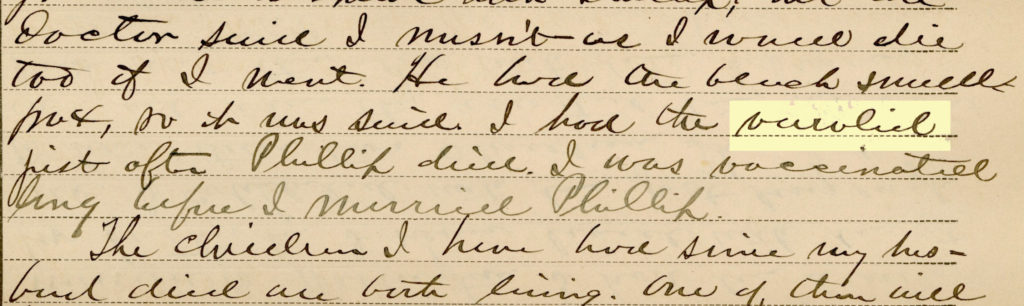 but the
Doctor said I musn't as I would die
too if I went. He had the black small-
pox, so it was said. I had the varolid
just after Phillip died. I was vaccinated
long before I married Phillip.
The children I have had since my hus-
band died are both living. One of them will